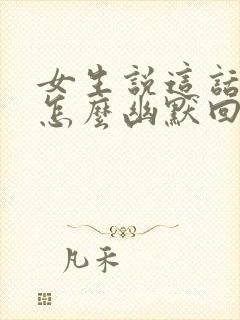 女生說這話
怎麼幽默回
凡禾